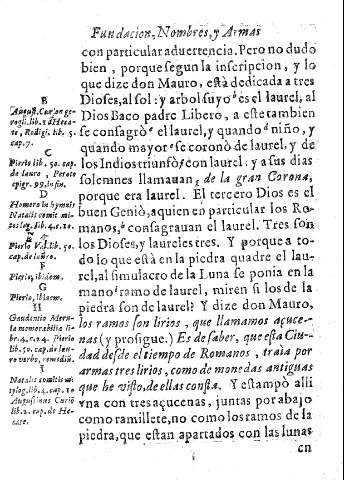 Fundacion, Nombres, y Armas
con particular aduertencia. Pero no dudo
bien, porque segun la inscripcion, y lo
que dize don Mauro, està dedicada a tres
Dioses, al sol: y arbol suyo es el laurel, al
Dios Baco padre Libero, a este tambien
se consagrò el laurel, y quando niño, y
quando mayor se coronò de laurel, y de
los Indios triunfò con laurel: y a sus dias
solemnes llamauan, de la gran Corona,
porque era laurel. El tercero Dios es el
buen Geniò, a quien en particular los Ro
manos, consagrauan el laurel. Tres son
los Dioses, y laureles tres. Y porque a to-
do lo que està en la piedra quadre el lau-
rel, al simulacro de la Luna se ponia en la
mano ramo de laurel, miren si los de la
piedra son de laurel? Y dize don Mauro,
los ramos son lirios, que llamamos açuce-
nas, (y prosigue.) Es de saber, que esta Ciu-
dad desde el tiempo de Romanos, traìa por
armas tres lirios, como de monedas antiguas
que he visto, de ellas consta. Y estampò alli
vna con tres açucenas, juntas por abajo
como ramillete, no como los ramos de la
piedra, que estan apartados con las lunas
en
B
August. Cur on ge
rogli. lib. 2. d Heca-
te, Rodigi. lib. 5.
cap. 7.
C
Pierio lib. 50. cap.
de lauro, Peroto
epigr. 99. in fin.
D
Homero in hymnis
Natalis comit. mi-
tolog. lib. 4. c. 10.
E
Pierio Val. lib. 50.
cap. de lauro.
F
Pierio, ibidem.
G
Pierio, ibidem.
H
Gaudencio Merula
memorabilia li-
br. 4. c. 24. Pierio
lib. 50. cap. de lau-
ro verbo, remediũ.
I
Natalis comitis mi
tylog. lib. 4. cap. 10
Augustinus Curiõ
lib. 2. cap. de He-
cate.